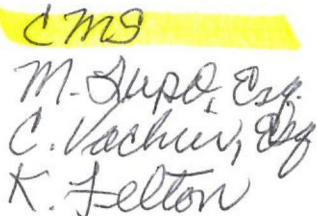 CMS
M. Lupo, Esq.
C. Vachier, Esq
K. Felton